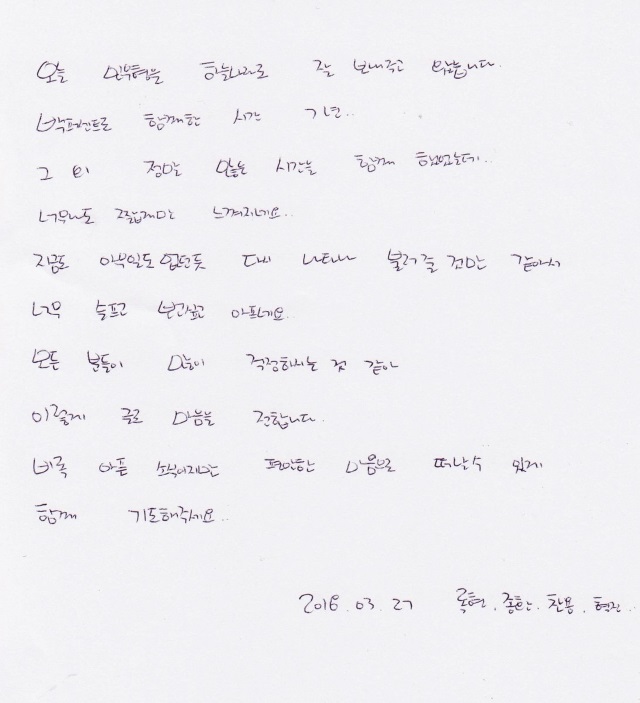 오늘 민우형을 하늘나라로 잘 보내주고 왔습니다.
백퍼센트로 함께한 시간 7년..
그 외 정말 많은 시간을 함께 했었는데..
너무나도 짧게만 느껴지네요..
지금도 아무일도 없던듯 다시 나타나 불러줄 것만 같아서
너무 슬프고 보고싶고 아프네요.
모든 분들이 많이 걱정하시는 것 같아
이렇게 글로 마음을 전합니다.
비록 아픈 소식이지만 편안한 마음으로 떠날 수 있게
함께 기도해주세요..
2018. 03. 27 록현. 종환. 찬용. 혁진..